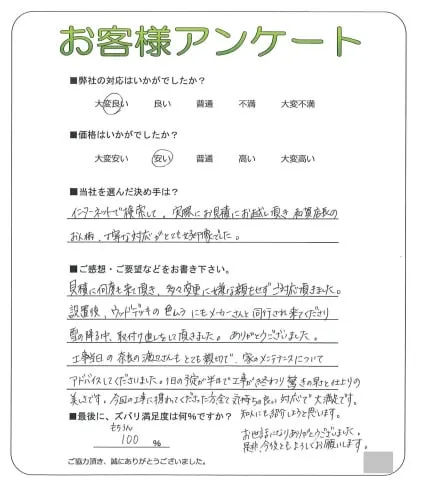 お客様アンケート
■弊社の対応はいかがでしたか？
大変良い 良い 普通 不満 大変不満
■価格はいかがでしたか？
大変安い 安い 普通 高い 大変高い
■当社を選んだ決め手は？
インターネットで検索して、実際にお見積にお越し頂き 店長の
お人柄、丁寧な対応がとても好印象でした。
■ご感想・ご要望などをお書き下さい。
見積に何度も来て頂き、多々変更に嫌な顔もせずご対応頂きました。
設置後、ウッドデッキの色ムラにもメーカーさんと同行され来てくださり
雪の降る中、取付け直しをして頂きました。ありがとうございました。
工事当日の 渡辺さんもとても親切で、家のメンテナンスについて
アドバイスしてくださいました。1日の予定が半日で工事が終わり驚きの早さと仕上りの
美しさです。今回の工事に携わってくださった方全て気持ちの良い対応で大満足です。
知人にも紹介しようと思います。
■最後に、ズバリ満足度は何%ですか？
もちろん
100 %
お世話になりありがとうございました。
是非、今後ともよろしくお願いします。
ご協力頂き、誠にありがとうございました。